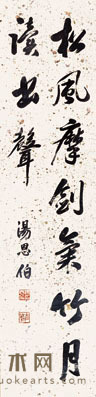 松風摩劍氣竹月
讀書聲
湯恩伯
木木网